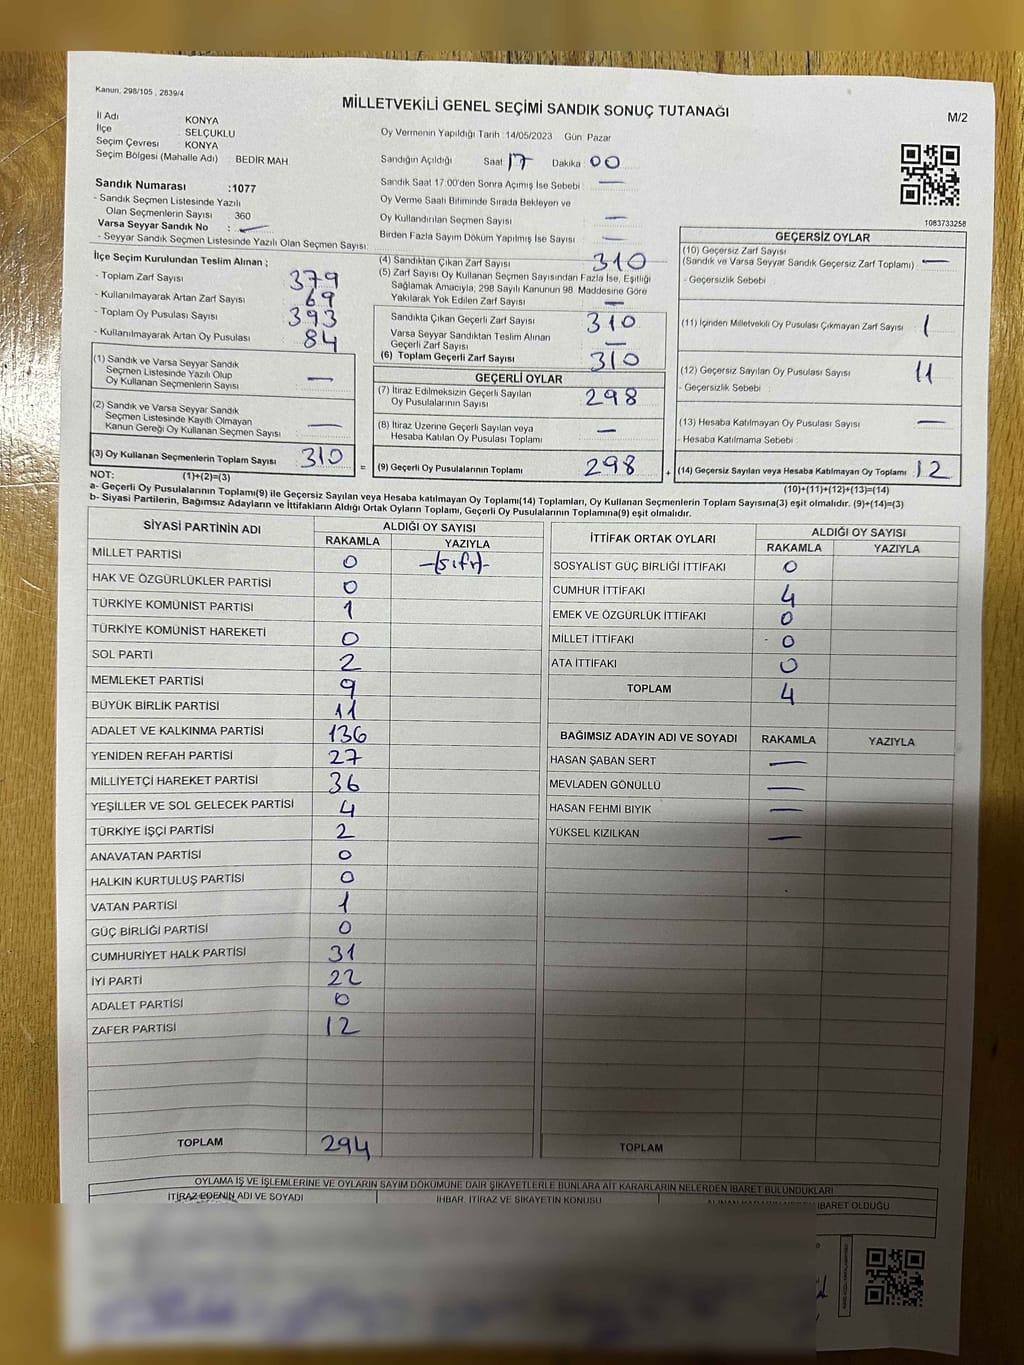 Kanun, 298/105 , 2839/4
MİLLETVEKİLİ GENEL SEÇİMİ SANDIK SONUÇ TUTANAĞI
M/2
İl Adı KONYA
İlçe SELÇUKLU
Seçim Çevresi KONYA
Seçim Bölgesi (Mahalle Adı) : BEDİR MAH
Sandık Numarası :1077
- Sandık Seçmen Listesinde Yazılı
Olan Seçmenlerin Sayısı : 360
Varsa Seyyar Sandık No : —
- Seyyar Sandık Seçmen Listesinde Yazılı Olan Seçmen Sayısı:
Oy Vermenin Yapıldığı Tarih :14/05/2023 Gün: Pazar
Sandığın Açıldığı Saat: 17 Dakika : 00
Sandık Saat 17:00'den Sonra Açımış İse Sebebi : —
Oy Verme Saati Bitiminde Sırada Bekleyen ve
Oy Kullandırılan Seçmen Sayısı —
Birden Fazla Sayım Döküm Yapılmış İse Sayısı —
1083733258
İlçe Seçim Kurulundan Teslim Alınan ;
- Toplam Zarf Sayısı 379
- Kullanılmayarak Artan Zarf Sayısı 69
- Toplam Oy Pusulası Sayısı 393
- Kullanılmayarak Artan Oy Pusulası 84
(1) Sandık ve Varsa Seyyar Sandık
Seçmen Listesinde Yazılı Olup
Oy Kullanan Seçmenlerin Sayısı —
(2) Sandık ve Varsa Seyyar Sandık
Seçmen Listesinde Kayıtlı Olmayan
Kanun Gereği Oy Kullanan Seçmen Sayısı —
(3) Oy Kullanan Seçmenlerin Toplam Sayısı 310
(1)+(2)=(3)
(4) Sandıktan Çıkan Zarf Sayısı 310
(5) Zarf Sayısı Oy Kullanan Seçmen Sayısından Fazla İse, Eşitliği
Sağlamak Amacıyla; 298 Sayılı Kanunun 98. Maddesine Göre
Yakılarak Yok Edilen Zarf Sayısı —
Sandıkta Çıkan Geçerli Zarf Sayısı 310
Varsa Seyyar Sandıktan Teslim Alınan
Geçerli Zarf Sayısı —
(6) Toplam Geçerli Zarf Sayısı 310
GEÇERLİ OYLAR
(7) İtiraz Edilmeksizin Geçerli Sayılan
Oy Pusulalarının Sayısı 298
(8) İtiraz Üzerine Geçerli Sayılan veya
Hesaba Katılan Oy Pusulası Toplamı —
= (9) Geçerli Oy Pusulalarının Toplamı 298
GEÇERSİZ OYLAR
(10) Geçersiz Zarf Sayısı
(Sandık ve Varsa Seyyar Sandık Geçersiz Zarf Toplamı) —
- Geçersizlik Sebebi :
(11) İçinden Milletvekili Oy Pusulası Çıkmayan Zarf Sayısı 1
(12) Geçersiz Sayılan Oy Pusulası Sayısı 11
- Geçersizlik Sebebi :
(13) Hesaba Katılmayan Oy Pusulası Sayısı —
- Hesaba Katılmama Sebebi :
+ (14) Geçersiz Sayılan veya Hesaba Katılmayan Oy Toplamı 12
(10)+(11)+(12)+(13)=(14)
NOT:
a- Geçerli Oy Pusulalarının Toplamı(9) ile Geçersiz Sayılan veya Hesaba katılmayan Oy Toplam(14) Toplamları, Oy Kullanan Seçmenlerin Toplam Sayısına(3) eşit olmalıdır. (9)+(14)=(3)
b- Siyasi Partilerin, Bağımsız Adayların ve İttifakların Aldığı Ortak Oyların Toplamı, Geçerli Oy Pusulalarının Toplamına(9) eşit olmalıdır.
SİYASİ PARTİNİN ADI ALDIĞI OY SAYISI
RAKAMLA YAZIYLA
MİLLET PARTİSİ 0 -(sıfır)-
HAK VE ÖZGÜRLÜKLER PARTİSİ 0
TÜRKİYE KOMÜNİST PARTİSİ 1
TÜRKİYE KOMÜNİST HAREKETİ 0
SOL PARTİ 2
MEMLEKET PARTİSİ 9
BÜYÜK BİRLİK PARTİSİ 11
ADALET VE KALKINMA PARTİSİ 136
YENİDEN REFAH PARTİSİ 27
MİLLİYETÇİ HAREKET PARTİSİ 36
YEŞİLLER VE SOL GELECEK PARTİSİ 4
TÜRKİYE İŞÇİ PARTİSİ 2
ANAVATAN PARTİSİ 0
HALKIN KURTULUŞ PARTİSİ 0
VATAN PARTİSİ 1
GÜÇ BİRLİĞİ PARTİSİ 0
CUMHURİYET HALK PARTİSİ 31
İYİ PARTİ 22
ADALET PARTİSİ 0
ZAFER PARTİSİ 12
TOPLAM 294
İTTİFAK ORTAK OYLARI ALDIĞI OY SAYISI
RAKAMLA YAZIYLA
SOSYALİST GÜÇ BİRLİĞİ İTTİFAKI 0
CUMHUR İTTİFAKI 4
EMEK VE ÖZGÜRLÜK İTTİFAKI 0
MİLLET İTTİFAKI 0
ATA İTTİFAKI 0
TOPLAM 4
BAĞIMSIZ ADAYIN ADI VE SOYADI RAKAMLA YAZIYLA
HASAN ŞABAN SERT —
MEVLADEN GÖNÜLLÜ —
HASAN FEHMI BIYIK —
YÜKSEL KIZILKAN —
TOPLAM
OYLAMA İŞ VE İŞLEMLERİNE VE OYLARIN SAYIM DÖKÜMÜNE DAİR ŞİKAYETLERLE BUNLARA AİT KARARLARIN NELERDEN İBARET BULUNDUKLARI
İTİRAZ EDENİN ADI VE SOYADI İHBAR, İTİRAZ VE ŞİKAYETİN KONUSU İBARET OLDUĞU